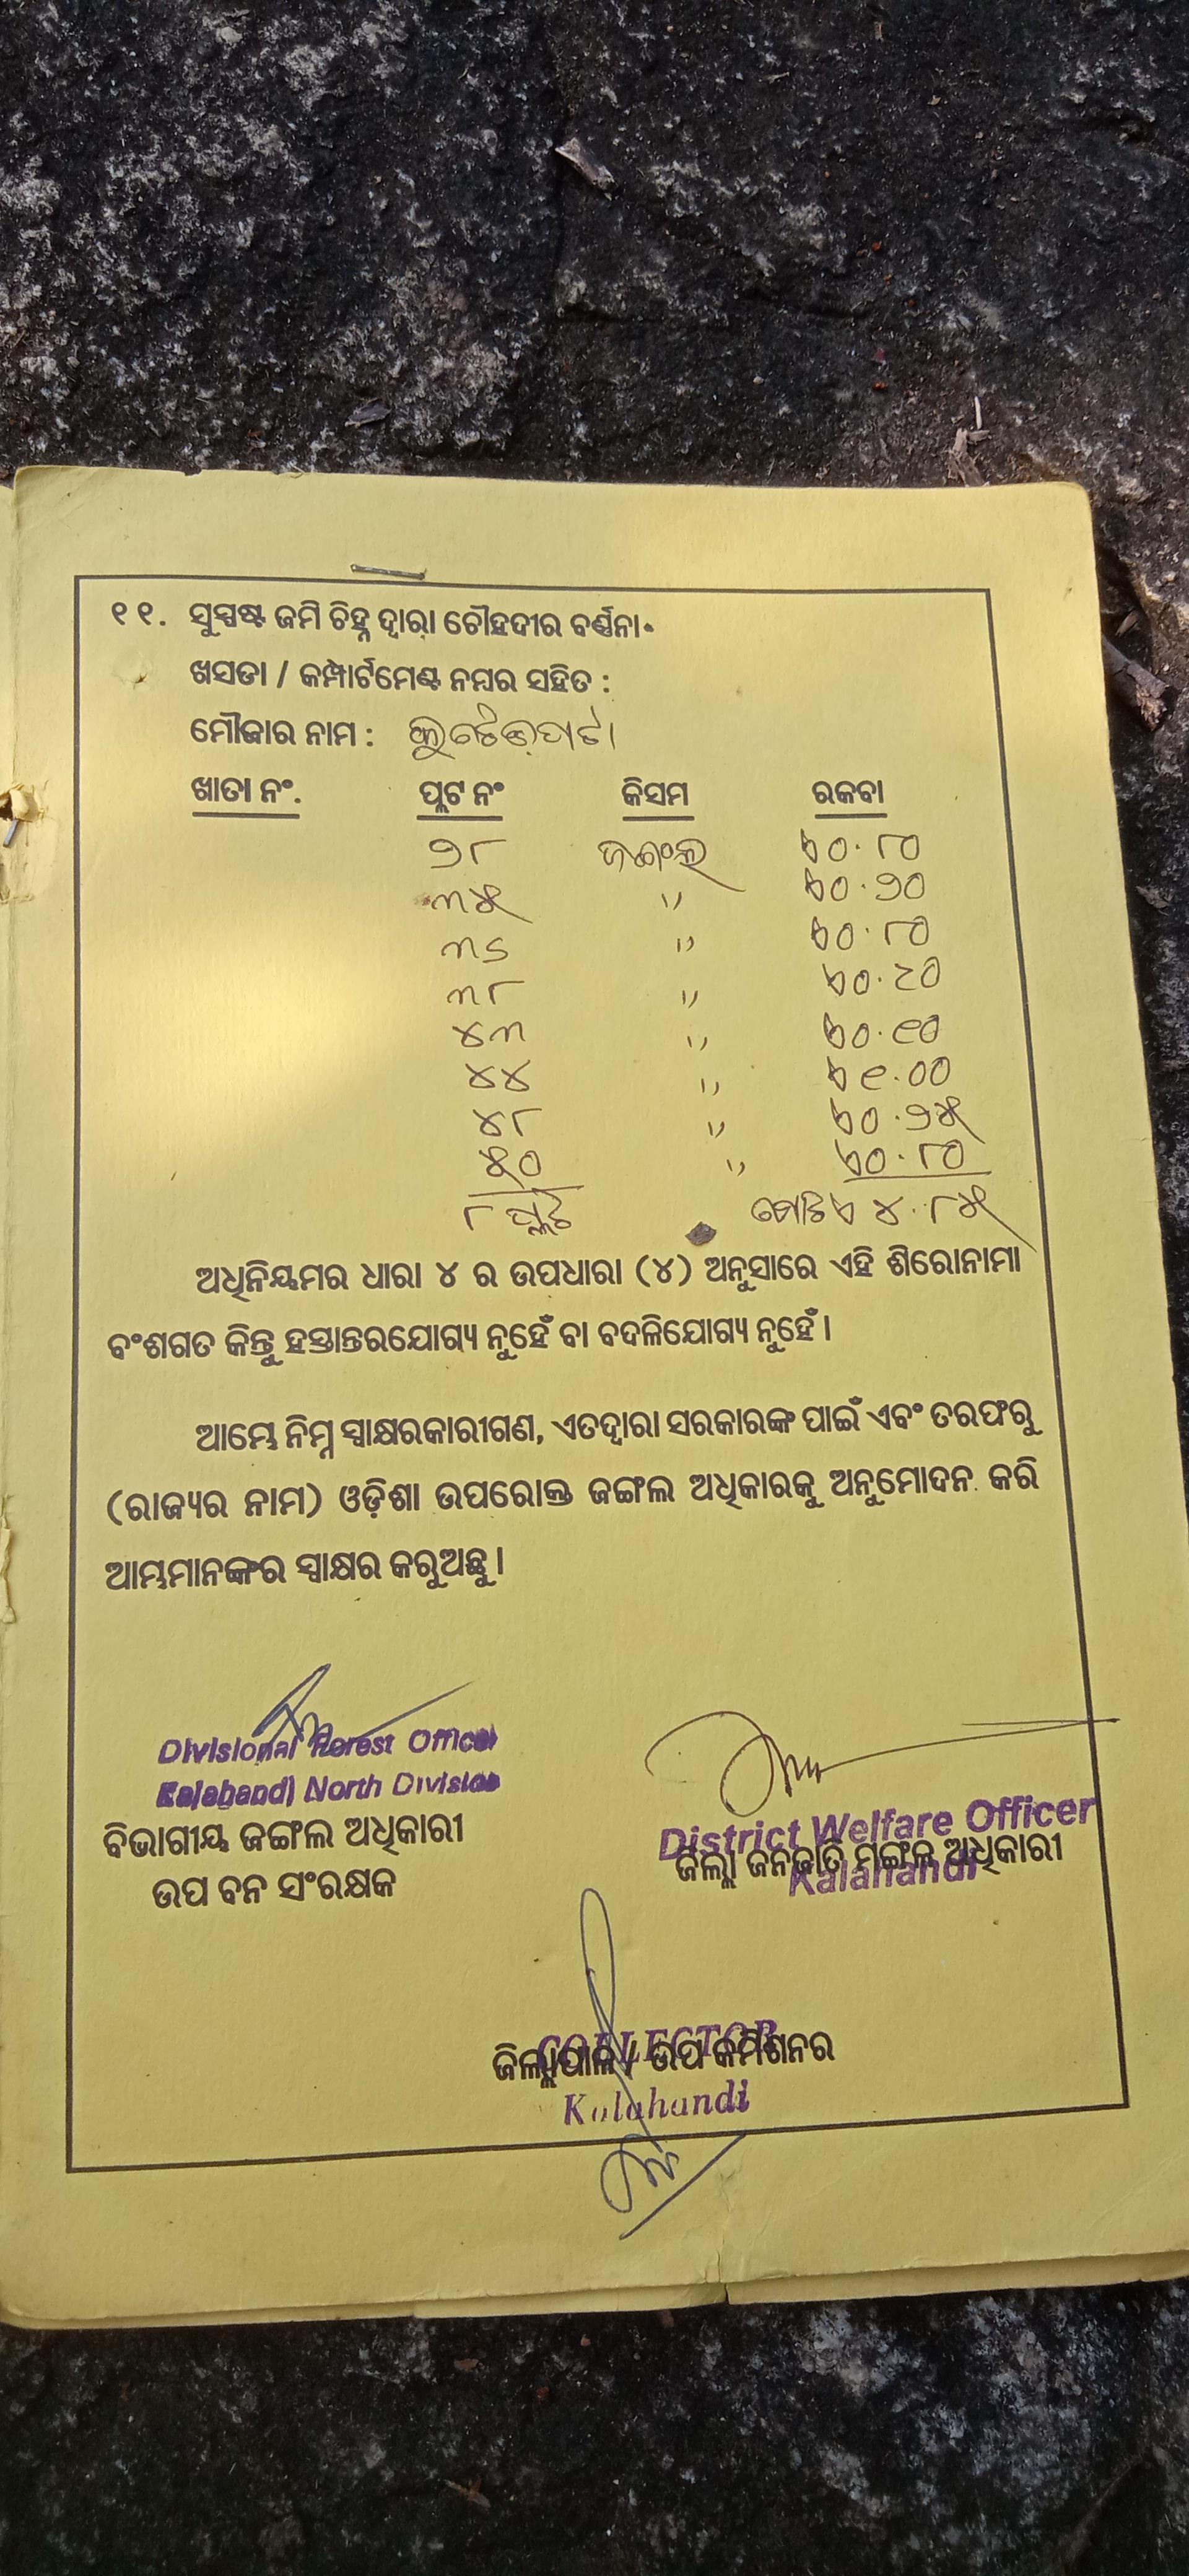 ୧୧. ସୁସ୍ପଷ୍ଟ ଜମି ଚିହ୍ନ ଦ୍ୱାରା ଚୌହଦୀର ବର୍ଣ୍ଣନା.
ଖସଡା / କମ୍ପାର୍ଟମେଣ୍ଟ ନମ୍ବର ସହିତ :
ମୌଜାର ନାମ :
ଖାତା ନଂ. ପ୍ଲଟ ନଂ କିସମ ରକବା
୨୮ ଜଙ୍ଗଲ ଏ୦.୮୦
୩୫ " ଏ୦.୨୦
୩୬ " ଏ୦.୮୦
୩୮ " ଏ୦.୨୦
୪୩ " ଏ୦.୧୦
୪୪ " ଏ୧.୦୦
୪୮ " ଏ୦.୨୫
୫୦ " ଏ୦.୮୦
୮ ପ୍ଲଟ ମୋଟ ଏ ୪.୮୫
ଅଧିନିୟମର ଧାରା ୪ ର ଉପଧାରା (୪) ଅନୁସାରେ ଏହି ଶିରୋନାମା
ବଂଶଗତ କିନ୍ତୁ ହସ୍ତାନ୍ତରଯୋଗ୍ୟ ନୁହେଁ ବା ବଦଳିଯୋଗ୍ୟ ନୁହେଁ ।
ଆମ୍ଭେ ନିମ୍ନ ସ୍ୱାକ୍ଷରକାରୀଗଣ, ଏତଦ୍ୱାରା ସରକାରଙ୍କ ପାଇଁ ଏବଂ ତରଫରୁ
(ରାଜ୍ୟର ନାମ) ଓଡ଼ିଶା ଉପରୋକ୍ତ ଜଙ୍ଗଲ ଅଧିକାରକୁ ଅନୁମୋଦନ କରି
ଆମ୍ଭମାନଙ୍କର ସ୍ୱାକ୍ଷର କରୁଅଛୁ ।
Divisional Forest Officer
Kalahandi North Division
ବିଭାଗୀୟ ଜଙ୍ଗଲ ଅଧିକାରୀ
ଉପ ବନ ସଂରକ୍ଷକ
District Welfare Officer
ଜିଲ୍ଲା ଜନଜାତି ମଙ୍ଗଳ ଅଧିକାରୀ
Kalahandi
COLLECTOR
ଜିଲ୍ଲାପାଳ / ଉପ କମିଶନର
Kalahandi